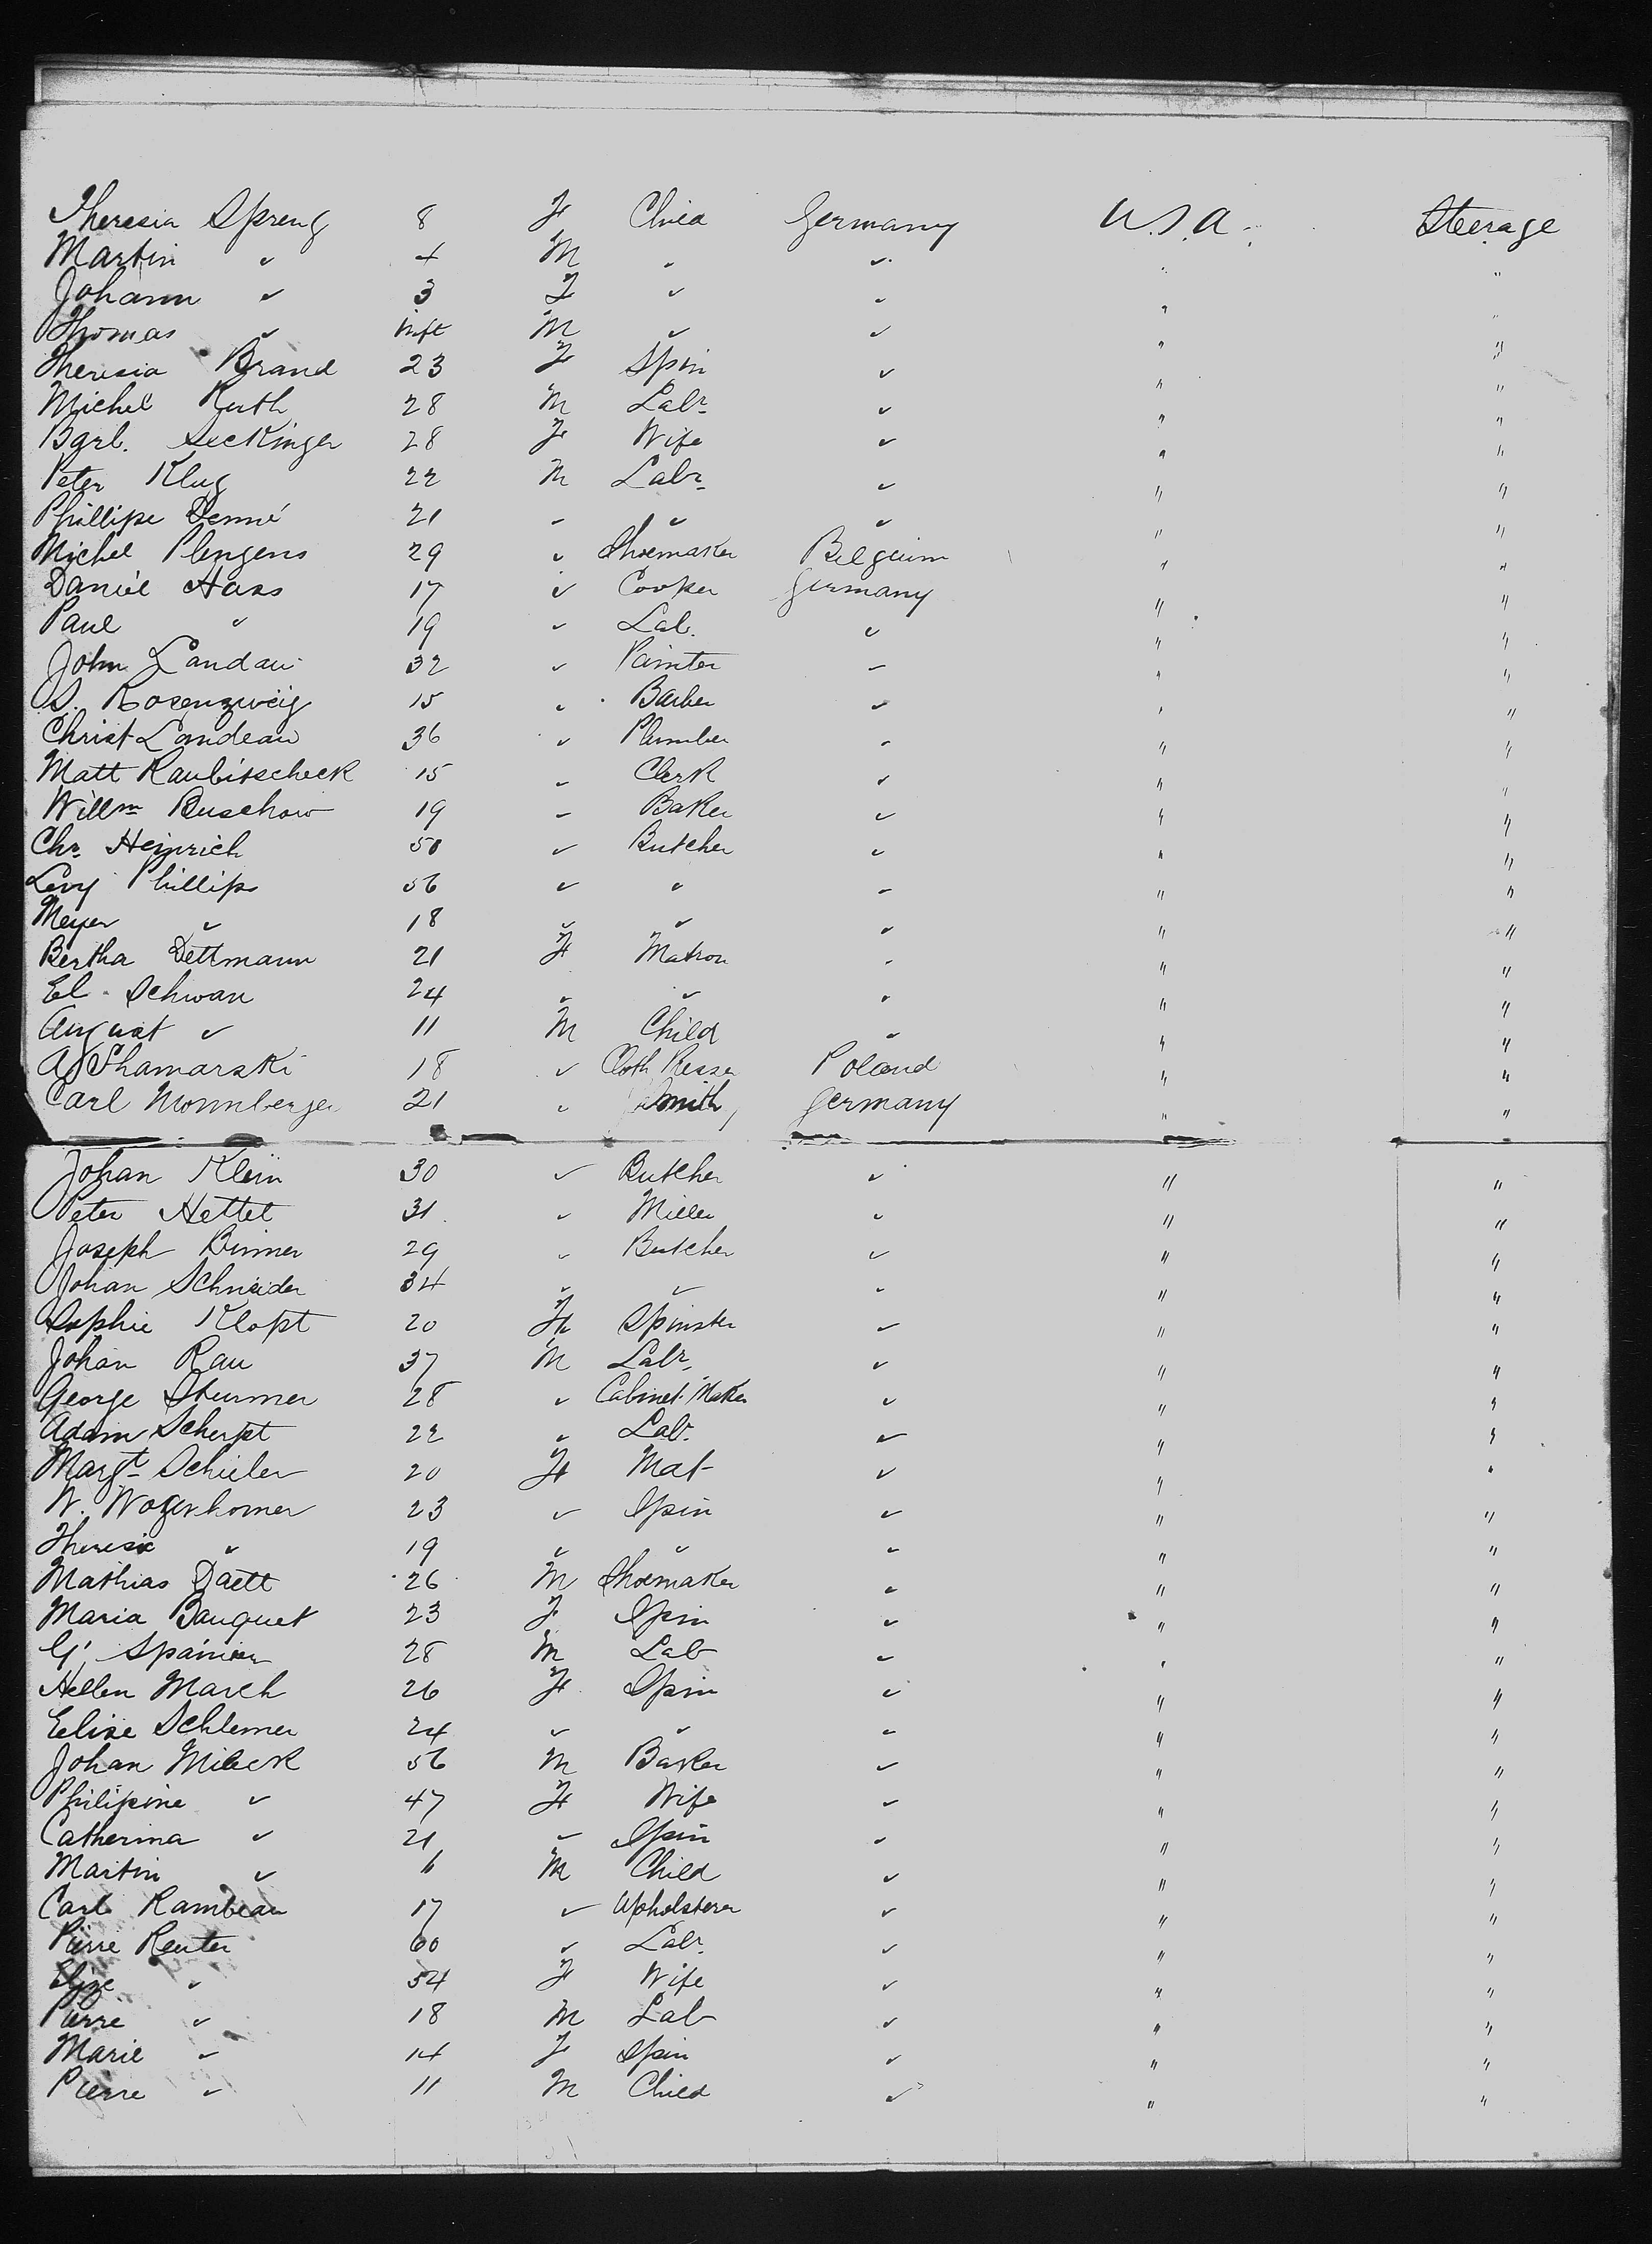 Theresia Spreng 8 F Child Germany U.S.A. Steerage
Martin " 4 M " " " "
Johann " 3 F " " " "
Thomas " inft M " " " "
Theresia Brand 23 F Spin " " "
Michel Ruth 28 M Labr " " "
Barb. Seckinger 28 F Wife " " "
Peter Klug 22 M Labr " " "
Phillipe Demié 21 " " " " "
Michel Plengens 29 " Shoemaker Belgium " "
Daniel Hass 17 " Cooper Germany " "
Paul " 19 " Lab. " " "
John Landau 32 " Painter " " "
S. Rosenzweig 15 " Barber " " "
Christ Landeau 36 " Plumber " " "
Matt Raubitscheck 15 " Clerk " " "
Willm Buschow 19 " Baker " " "
Chr. Heinrich 50 " Butcher " " "
Levy Phillips 56 " " " " "
Meyer " 18 " " " " "
Bertha Dettmann 21 F Matron " " "
El. Schwan 24 " " " " "
August " 11 M Child " " "
A Shamarski 18 " Cloth Presser Poland " "
Carl Monnberger 21 " Smith Germany " "
Johan Klein 30 " Butcher " " "
Peter Hettel 31 " Miller " " "
Joseph Binner 29 " Butcher " " "
Johan Schneider 34 " " " " "
Sophie Klopt 20 F Spinster " " "
Johan Rau 37 M Labr. " " "
George Sturmer 28 " Cabinet Maker " " "
Adam Scherpt 22 " Labr " " "
Margt Schieler 20 F Mat " " "
W. Wogerhorner 23 " Spin " " "
Theresia " 19 " " " " "
Mathias Daett 26 M Shoemaker " " "
Maria Bauquet 23 F Spin " " "
G. Spanier 28 M Lab " " "
Hellen March 26 F Spin " " "
Eelise Schlemer 24 " " " " "
Johan Mileck 56 M Baker " " "
Philipine " 47 F Wife " " "
Catherina " 21 " Spin " " "
Martin " 6 M Child " " "
Carl Rambeau 17 " Upholsterer " " "
Pierre Reuter 60 " Labr. " " "
Elize " 54 F Wife " " "
Pierre " 18 M Lab " " "
Marie " 14 F Spin " " "
Pierre " 11 M Child " " "